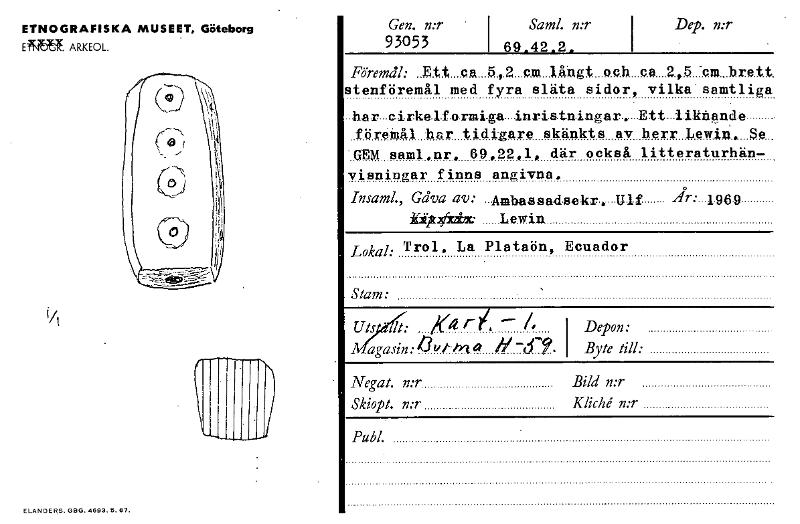 ETNOGRAFISKA MUSEET, Göteborg
ETNOGR. ARKEOL.
1/1
ELANDERS. GBG. 4693. 5. 67.
Gen. n:r Saml. n:r Dep. n:r
93053 69.42.2.
Föremål: Ett ca 5,2 cm långt och ca 2,5 cm brett
stenföremål med fyra släta sidor, vilka samtliga
har cirkelformiga inristningar. Ett liknande
föremål har tidigare skänkts av herr Lewin. Se
GEM saml.nr. 69.22.1, där också litteraturhän-
visningar finns angivna.
Insaml., Gåva av: Ambassadsekr. Ulf År: 1969
Köpt från: Lewin
Lokal: Trol. La Plataön, Ecuador
Stam:
Utställt: Kart. - 1. Depon:
Magasin: Burma H-59. Byte till:
Negat. n:r Bild n:r
Skiopt. n:r Kliché n:r
Publ.